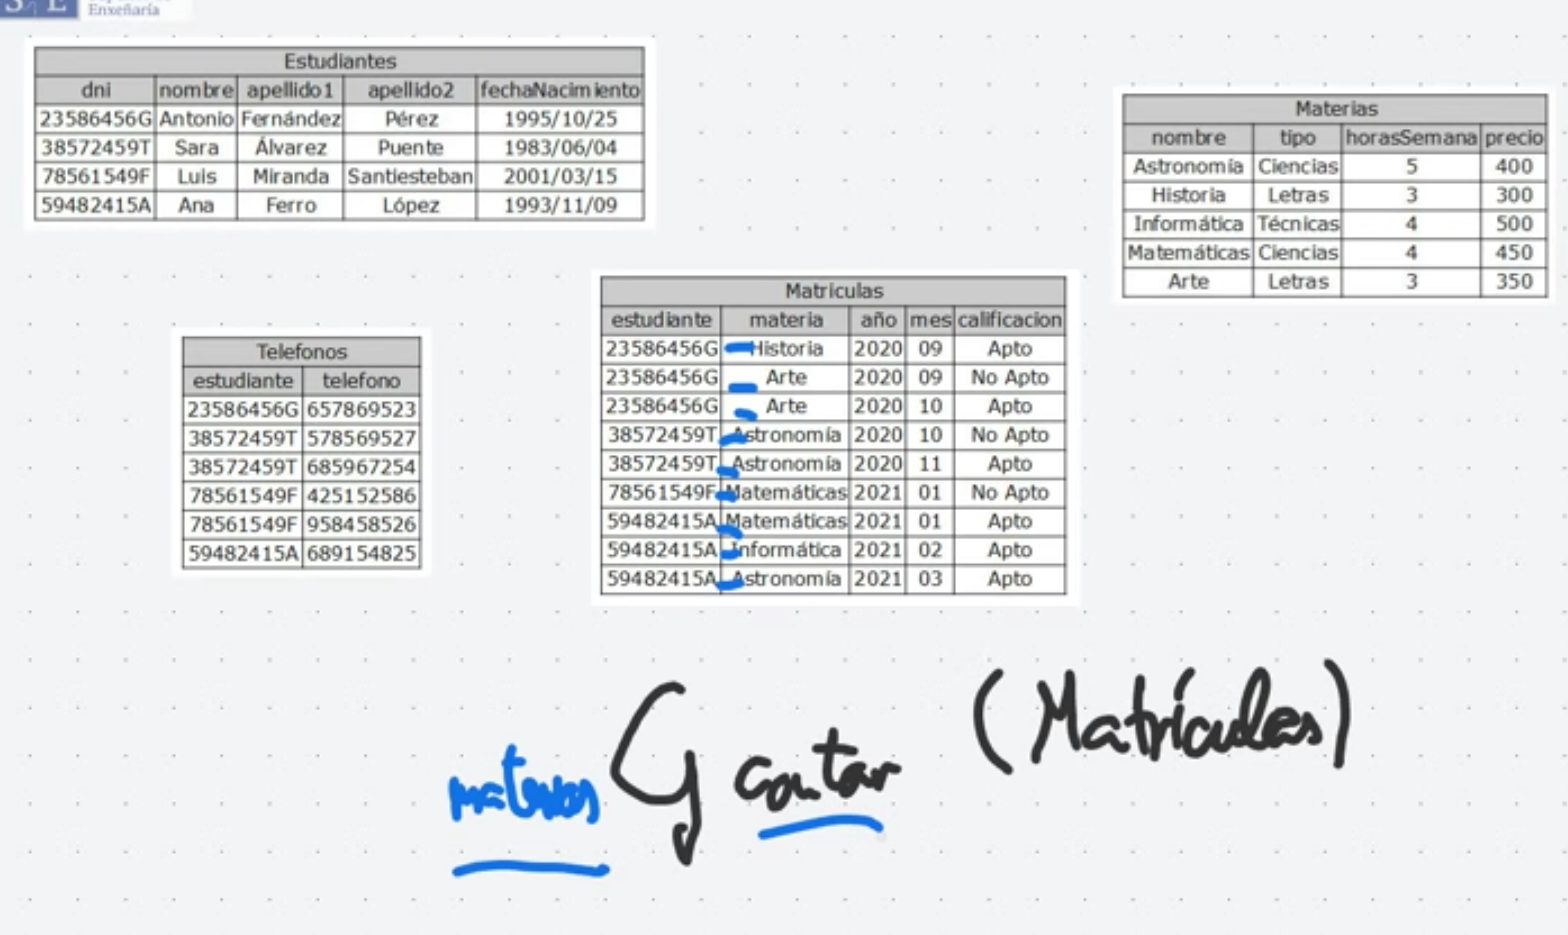 Enxeñaría
Estudiantes
dni nombre apellido1 apellido2 fechaNacimiento
23586456G Antonio Fernández Pérez 1995/10/25
38572459T Sara Álvarez Puente 1983/06/04
78561549F Luis Miranda Santiesteban 2001/03/15
59482415A Ana Ferro López 1993/11/09
Materias
nombre tipo horasSemana precio
Astronomía Ciencias 5 400
Historia Letras 3 300
Informática Técnicas 4 500
Matemáticas Ciencias 4 450
Arte Letras 3 350
Telefonos
estudiante telefono
23586456G 657869523
38572459T 578569527
38572459T 685967254
78561549F 425152586
78561549F 958458526
59482415A 689154825
Matriculas
estudiante materia año mes calificacion
23586456G Historia 2020 09 Apto
23586456G Arte 2020 09 No Apto
23586456G Arte 2020 10 Apto
38572459T Astronomía 2020 10 No Apto
38572459T Astronomía 2020 11 Apto
78561549F Matemáticas 2021 01 No Apto
59482415A Matemáticas 2021 01 Apto
59482415A Informática 2021 02 Apto
59482415A Astronomía 2021 03 Apto
G contar (Matrículas)